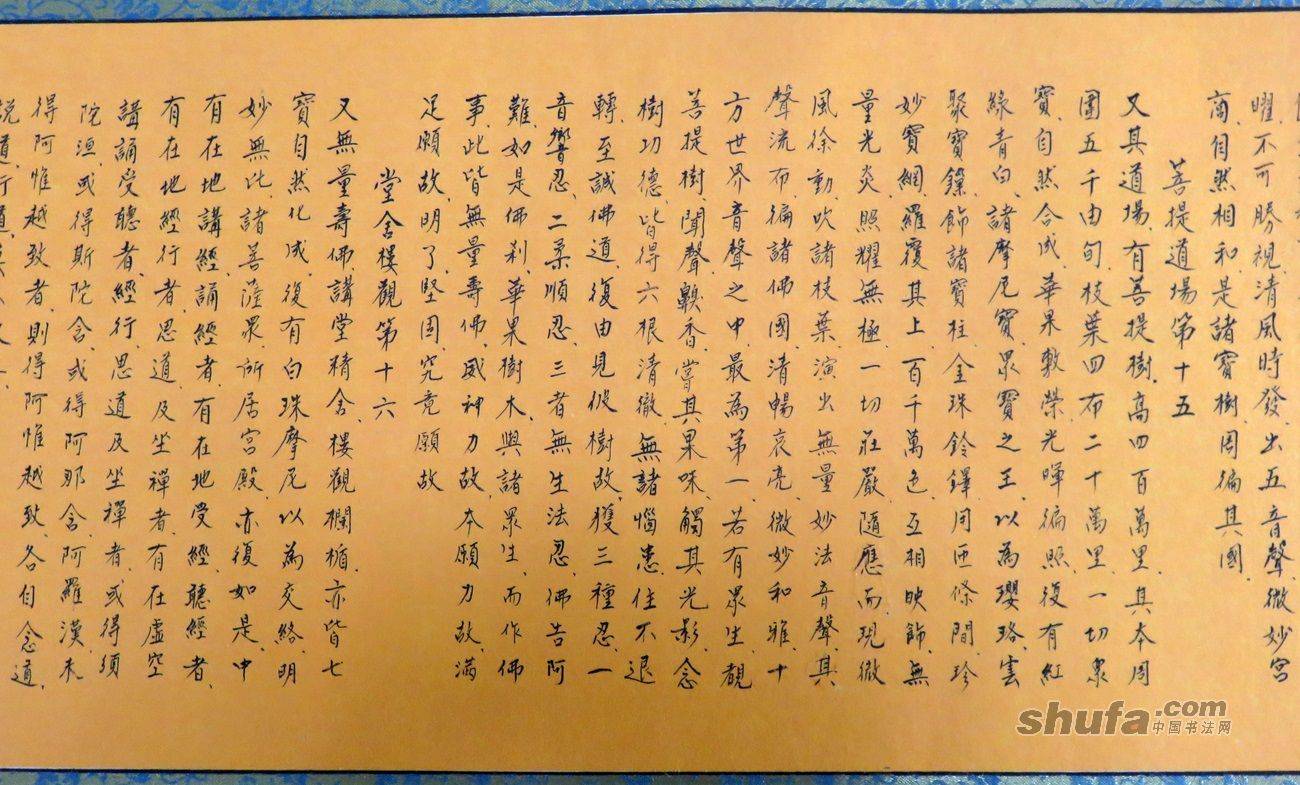 曜、不可勝視、清風時發、出五音聲、微妙宮
商、自然相和、是諸寶樹、周徧其國、
菩提道場第十五
又其道場、有菩提樹、高四百萬里、其本周
圍五千由旬、枝葉四布二十萬里、一切衆
寶、自然合成、華果敷榮、光暉徧照、復有紅
綠青白、諸摩尼寶、衆寶之王、以為瓔珞、雲
聚寶鏁、飾諸寶柱、金珠鈴鐸、周匝條間、珍
妙寶網、羅覆其上、百千萬色、互相映飾、無
量光炎、照耀無極、一切莊嚴、隨應而現、微
風徐動、吹諸枝葉、演出無量妙法音聲、其
聲流布、徧諸佛國、清暢哀亮、微妙和雅、十
方世界音聲之中、最為第一、若有衆生、覩
菩提樹、聞聲、齅香、嘗其果味、觸其光影、念
樹功德、皆得六根清徹、無諸惱患、住不退
轉、至誠佛道、復由見彼樹故、獲三種忍、一
音響忍、二柔順忍、三者無生法忍、佛告阿
難、如是佛刹、華果樹木、與諸衆生、而作佛
事、此皆無量壽佛、威神力故、本願力故、滿
足願故、明了、堅固究竟願故
堂舍樓觀第十六
又無量壽佛、講堂精舍、樓觀欄楯、亦皆七
寶自然化成、復有白珠摩尼以為交絡、明
妙無比、諸菩薩衆、所居宮殿、亦復如是、中
有在地講經、誦經者、有在地受經、聽經者、
有在地經行者、思道、及坐禪者、有在虛空
講誦受聽者、經行思道及坐禪者、或得須
陀洹、或得斯陀含、或得阿那含、阿羅漢、未
得阿惟越致者、則得阿惟越致、各自念道、
説道、行道
shufa.com
中国书法网